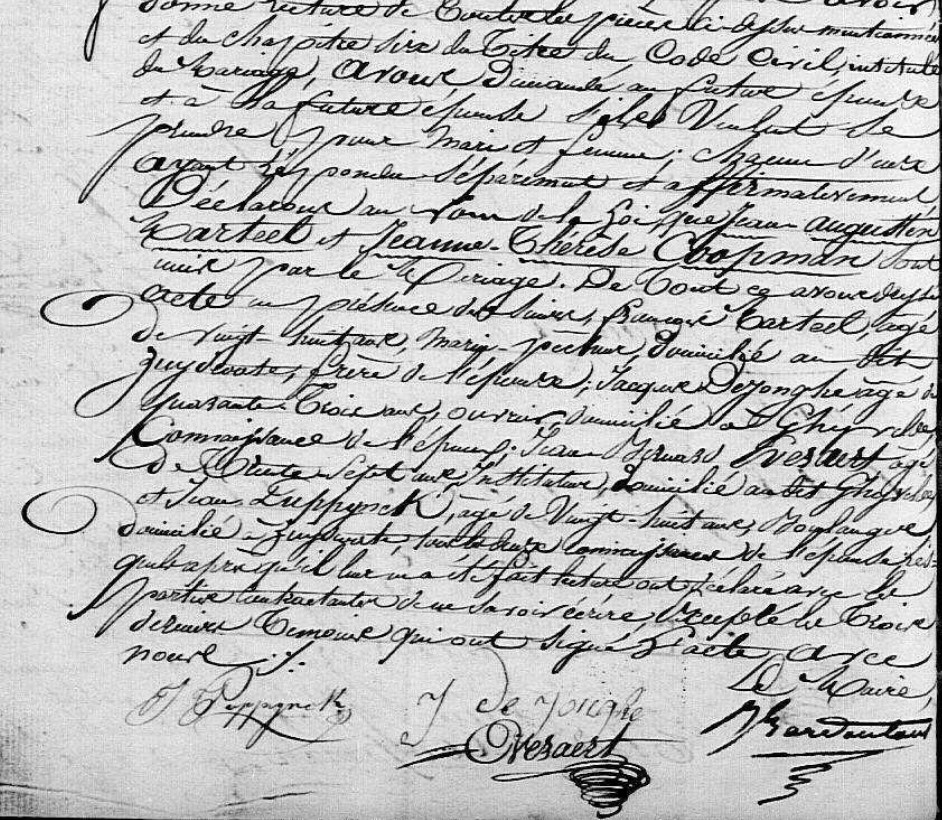 donné lecture de Toutes les pièces ci-dessus mentionnées
et du chapitre six du Titre du Code Civil, intitulé
du Mariage, avons Demandé au futur époux
et à la future épouse s'ils Veulent se
prendre pour mari et femme; chacun d'eux
ayant Répondu Séparément et affirmativement,
Déclarons au Nom de la Loi que Jean Augustin
Karteel et Jeanne-Thérèse Coopman Sont
unis par le Mariage. De Tout ce avons dressé
acte en présence des Sieurs, François Karteel, âgé
de vingt-huit ans, Marin-pêcheur, Domicilié au dit
Zuydcoote, frère de l'époux; Jacques Dejonghe âgé de
Quarante-Trois ans, ouvrier, domicilié à Ghyvelde
Connaissance de l'époux; Jean Bernard Everaert âgé
de Trente-Sept ans Instituteur, domicilié au dit Ghyvelde,
et Jean Luppynck, âgé de Vingt-huit ans, Boulanger
domicilié à Zuydcoote, tous les deux connaissances de l'épouse les=
quels après qu'il leur en a été fait lecture ont déclaré avec les
parties contractantes de ne Savoir écrire Excepté les Trois
derniers Temoins qui ont signé l'acte, avec
nous ./.
Le Maire,
J de Jonghe
Everaert